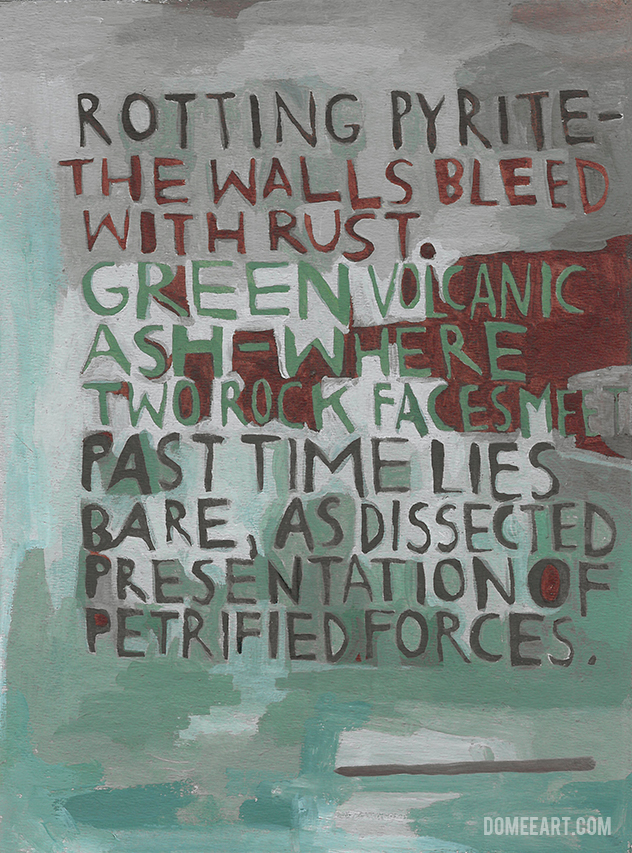 ROTTING PYRITE-
THE WALLS BLEED
WITH RUST.
GREEN VOLCANIC
ASH-WHERE
TWO ROCK FACES MEET
PAST TIME LIES
BARE, AS DISSECTED
PRESENTATION OF
PETRIFIED.FORCES.
DOMEEART.COM